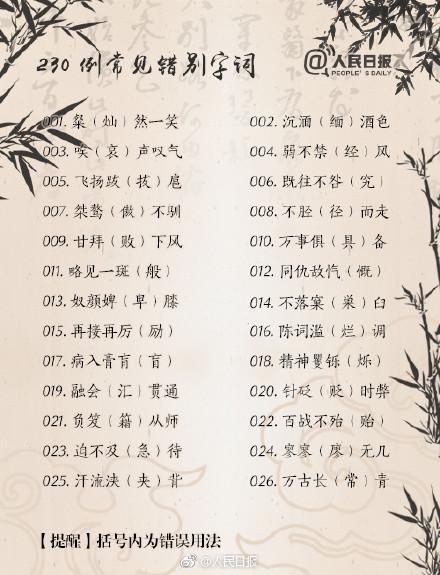 230 例常见错别字词
@人民日报
PEOPLE'S DAILY
001. 粲（灿）然一笑 002. 沉湎（缅）酒色
003. 唉（哀）声叹气 004. 弱不禁（经）风
005. 飞扬跋（拔）扈 006. 既往不咎（究）
007. 桀骜（傲）不驯 008. 不胫（径）而走
009. 甘拜（败）下风 010. 万事俱（具）备
011. 略见一斑（般） 012. 同仇敌忾（慨）
013. 奴颜婢（卑）膝 014. 不落窠（巢）臼
015. 再接再厉（励） 016. 陈词滥（烂）调
017. 病入膏肓（盲） 018. 精神矍铄（烁）
019. 融会（汇）贯通 020. 针砭（贬）时弊
021. 负笈（籍）从师 022. 百战不殆（贻）
023. 迫不及（急）待 024. 寥寥（廖）无几
025. 汗流浃（夹）背 026. 万古长（常）青
【提醒】括号内为错误用法
@人民日报